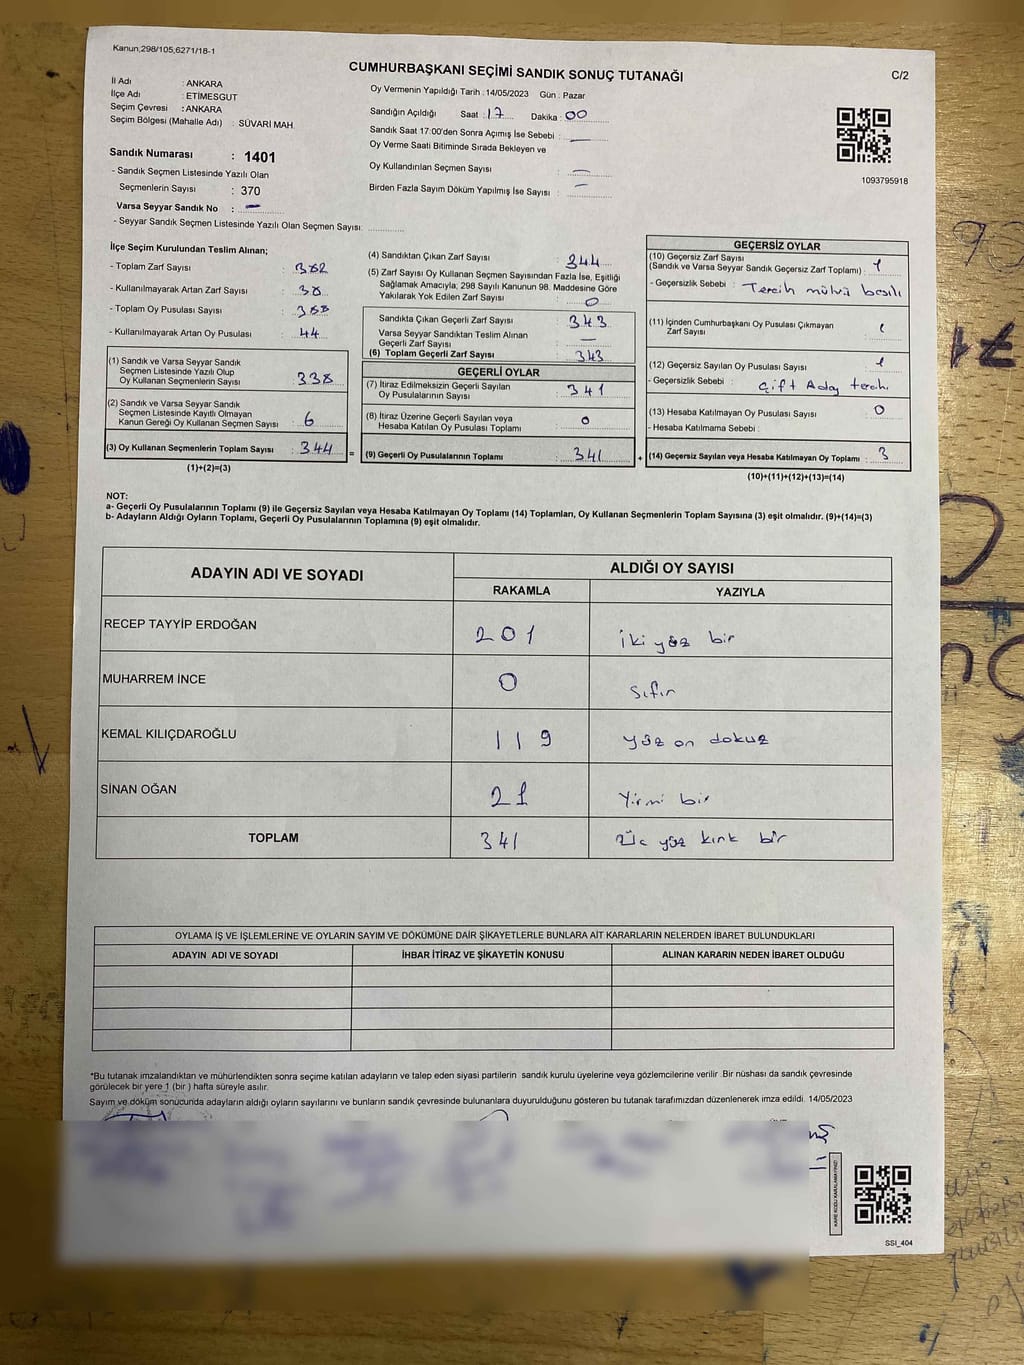 Kanun,298/105,6271/18-1
CUMHURBAŞKANI SEÇİMİ SANDIK SONUÇ TUTANAĞI
C/2
İl Adı : ANKARA
İlçe Adı : ETİMESGUT
Seçim Çevresi : ANKARA
Seçim Bölgesi (Mahalle Adı) : SÜVARİ MAH.
Sandık Numarası : 1401
- Sandık Seçmen Listesinde Yazılı Olan
Seçmenlerin Sayısı : 370
Varsa Seyyar Sandık No : –
- Seyyar Sandık Seçmen Listesinde Yazılı Olan Seçmen Sayısı:
Oy Vermenin Yapıldığı Tarih : 14/05/2023 Gün : Pazar
Sandığın Açıldığı Saat : 17 Dakika : 00
Sandık Saat 17:00'den Sonra Açımış İse Sebebi : —
Oy Verme Saati Bitiminde Sırada Bekleyen ve
Oy Kullandırılan Seçmen Sayısı : —
Birden Fazla Sayım Döküm Yapılmış İse Sayısı : –
1093795918
İlçe Seçim Kurulundan Teslim Alınan;
- Toplam Zarf Sayısı : 382
- Kullanılmayarak Artan Zarf Sayısı : 38
- Toplam Oy Pusulası Sayısı : 388
- Kullanılmayarak Artan Oy Pusulası : 44
(1) Sandık ve Varsa Seyyar Sandık
Seçmen Listesinde Yazılı Olup
Oy Kullanan Seçmenlerin Sayısı : 338
(2) Sandık ve Varsa Seyyar Sandık
Seçmen Listesinde Kayıtlı Olmayan
Kanun Gereği Oy Kullanan Seçmen Sayısı : 6
(3) Oy Kullanan Seçmenlerin Toplam Sayısı : 344 =
(1)+(2)=(3)
(4) Sandıktan Çıkan Zarf Sayısı : 344
(5) Zarf Sayısı Oy Kullanan Seçmen Sayısından Fazla İse, Eşitliği
Sağlamak Amacıyla, 298 Sayılı Kanunun 98. Maddesine Göre
Yakılarak Yok Edilen Zarf Sayısı : 0
Sandıkta Çıkan Geçerli Zarf Sayısı : 343
Varsa Seyyar Sandıktan Teslim Alınan
Geçerli Zarf Sayısı : —
(6) Toplam Geçerli Zarf Sayısı : 343
GEÇERLİ OYLAR
(7) İtiraz Edilmeksizin Geçerli Sayılan
Oy Pusulalarının Sayısı : 341
(8) İtiraz Üzerine Geçerli Sayılan veya
Hesaba Katılan Oy Pusulası Toplamı : 0
(9) Geçerli Oy Pusulalarının Toplamı : 341 +
GEÇERSİZ OYLAR
(10) Geçersiz Zarf Sayısı
(Sandık ve Varsa Seyyar Sandık Geçersiz Zarf Toplamı) : 1
- Geçersizlik Sebebi : Tercih mührü basılı
(11) İçinden Cumhurbaşkanı Oy Pusulası Çıkmayan
Zarf Sayısı : 1
(12) Geçersiz Sayılan Oy Pusulası Sayısı : 1
- Geçersizlik Sebebi : Çift Aday tercihi
(13) Hesaba Katılmayan Oy Pusulası Sayısı : 0
- Hesaba Katılmama Sebebi :
(14) Geçersiz Sayılan veya Hesaba Katılmayan Oy Toplamı : 3
(10)+(11)+(12)+(13)=(14)
NOT:
a- Geçerli Oy Pusulalarının Toplamı (9) ile Geçersiz Sayılan veya Hesaba Katılmayan Oy Toplamı (14) Toplamları, Oy Kullanan Seçmenlerin Toplam Sayısına (3) eşit olmalıdır. (9)+(14)=(3)
b- Adayların Aldığı Oyların Toplamı, Geçerli Oy Pusulalarının Toplamına (9) eşit olmalıdır.
ADAYIN ADI VE SOYADI ALDIĞI OY SAYISI
RAKAMLA YAZIYLA
RECEP TAYYİP ERDOĞAN 201 iki yüz bir
MUHARREM İNCE 0 sıfır
KEMAL KILIÇDAROĞLU 119 yüz on dokuz
SİNAN OĞAN 21 Yirmi bir
TOPLAM 341 Üç yüz kırk bir
OYLAMA İŞ VE İŞLEMLERİNE VE OYLARIN SAYIM VE DÖKÜMÜNE DAİR ŞİKAYETLERLE BUNLARA AİT KARARLARIN NELERDEN İBARET BULUNDUKLARI
ADAYIN ADI VE SOYADI İHBAR İTİRAZ VE ŞİKAYETİN KONUSU ALINAN KARARIN NEDEN İBARET OLDUĞU
*Bu tutanak imzalandıktan ve mühürlendikten sonra seçime katılan adayların ve talep eden siyasi partilerin sandık kurulu üyelerine veya gözlemcilerine verilir .Bir nüshası da sandık çevresinde
görülecek bir yere 1 (bir ) hafta süreyle asılır.
Sayım ve döküm sonucunda adayların aldığı oyların sayılarını ve bunların sandık çevresinde bulunanlara duyurulduğunu gösteren bu tutanak tarafımızdan düzenlenerek imza edildi. 14/05/2023
KARE KODU KARALAMAYINIZ!
SSİ_404